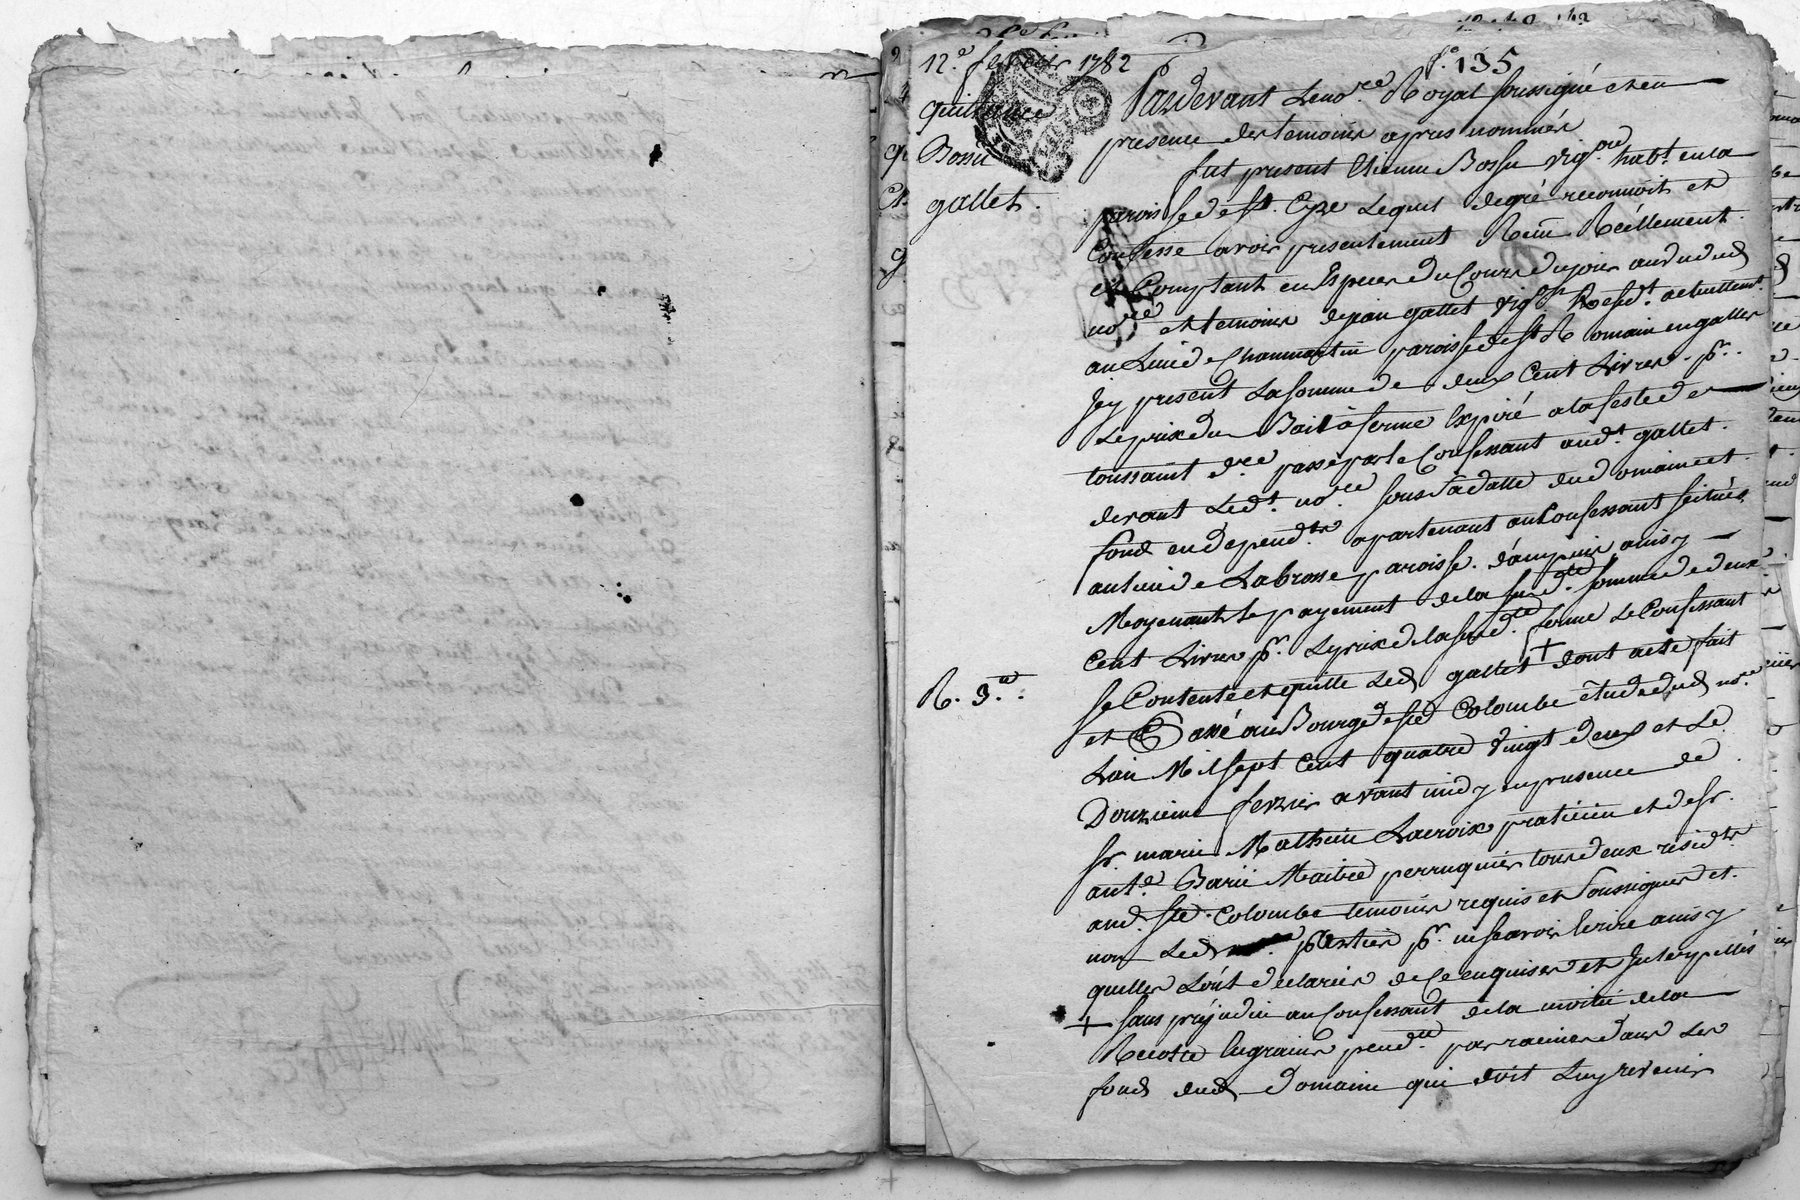 12.e fevrier 1782
quittance
Bossu
gallet.
fo. 135
Pardevant Le no.re Royal soussigné et en
presence des temoins apres nommés
fut present Etienne Bossu vig.on hab.t en la
paroisse de st. Cyr Lequel de gré reconnoit et
Confesse avoir presentement Receu Réellement
et Comptant en Especes du Cours du jour au vu dud
no.re et temoins de jean gallet vig.on Resid.t actuellem.t
au Lieu de Chammartin paroisse de st Romain en gallet
Jcy present La somme de deux Cent Livres pr.
Le prix du Bail a ferme Expiré a la feste de
toussaint d.re passé par le Confessant aud.t gallet
devant Led.t no.re sous sa datte du domaine et
fond en depend.ts apartenant au Confessant scitués
au Lieu de Labrosse paroisse d'ampuis ainsy
Moyenant le payement de la susd.te somme de deux
Cent Livres pr. Le prix de la susd.te ferme Le Confessant
R. 3.
se Contente et quitte Led gallet + dont acte fait
et Passé au Bourg de ste Colombe étude dud no.re
L'an Mil sept Cent quatre vingt deux et Le
Douzieme fevrier avant midy en presence de
sr marie Mathieu Lacroix praticien et de sr.
ant.e Barié Maitre perruquier tous deux resid.ts
aud. ste. Colombe temoins requis et soussignés et
non Led parties pr. ne scavoir Ecrire ainsy
quelles L'ont declarées de Ce enquises et Interpellés
+ sans préjudice au Confessant de la moitié de la
Recolte En grains pend.te par racines dans Les
fond dud Domaine qui doit Luy revenir